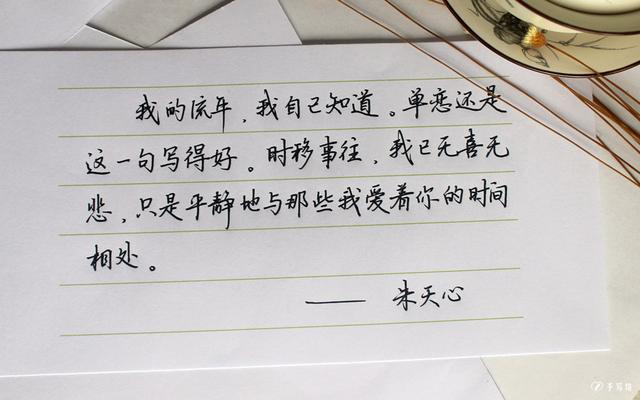 我的流年，我自己知道。单恋还是
这一句写得好。时移事往，我已无喜无
悲，只是平静地与那些我爱着你的时间
相处。
—— 朱天心
手写馆